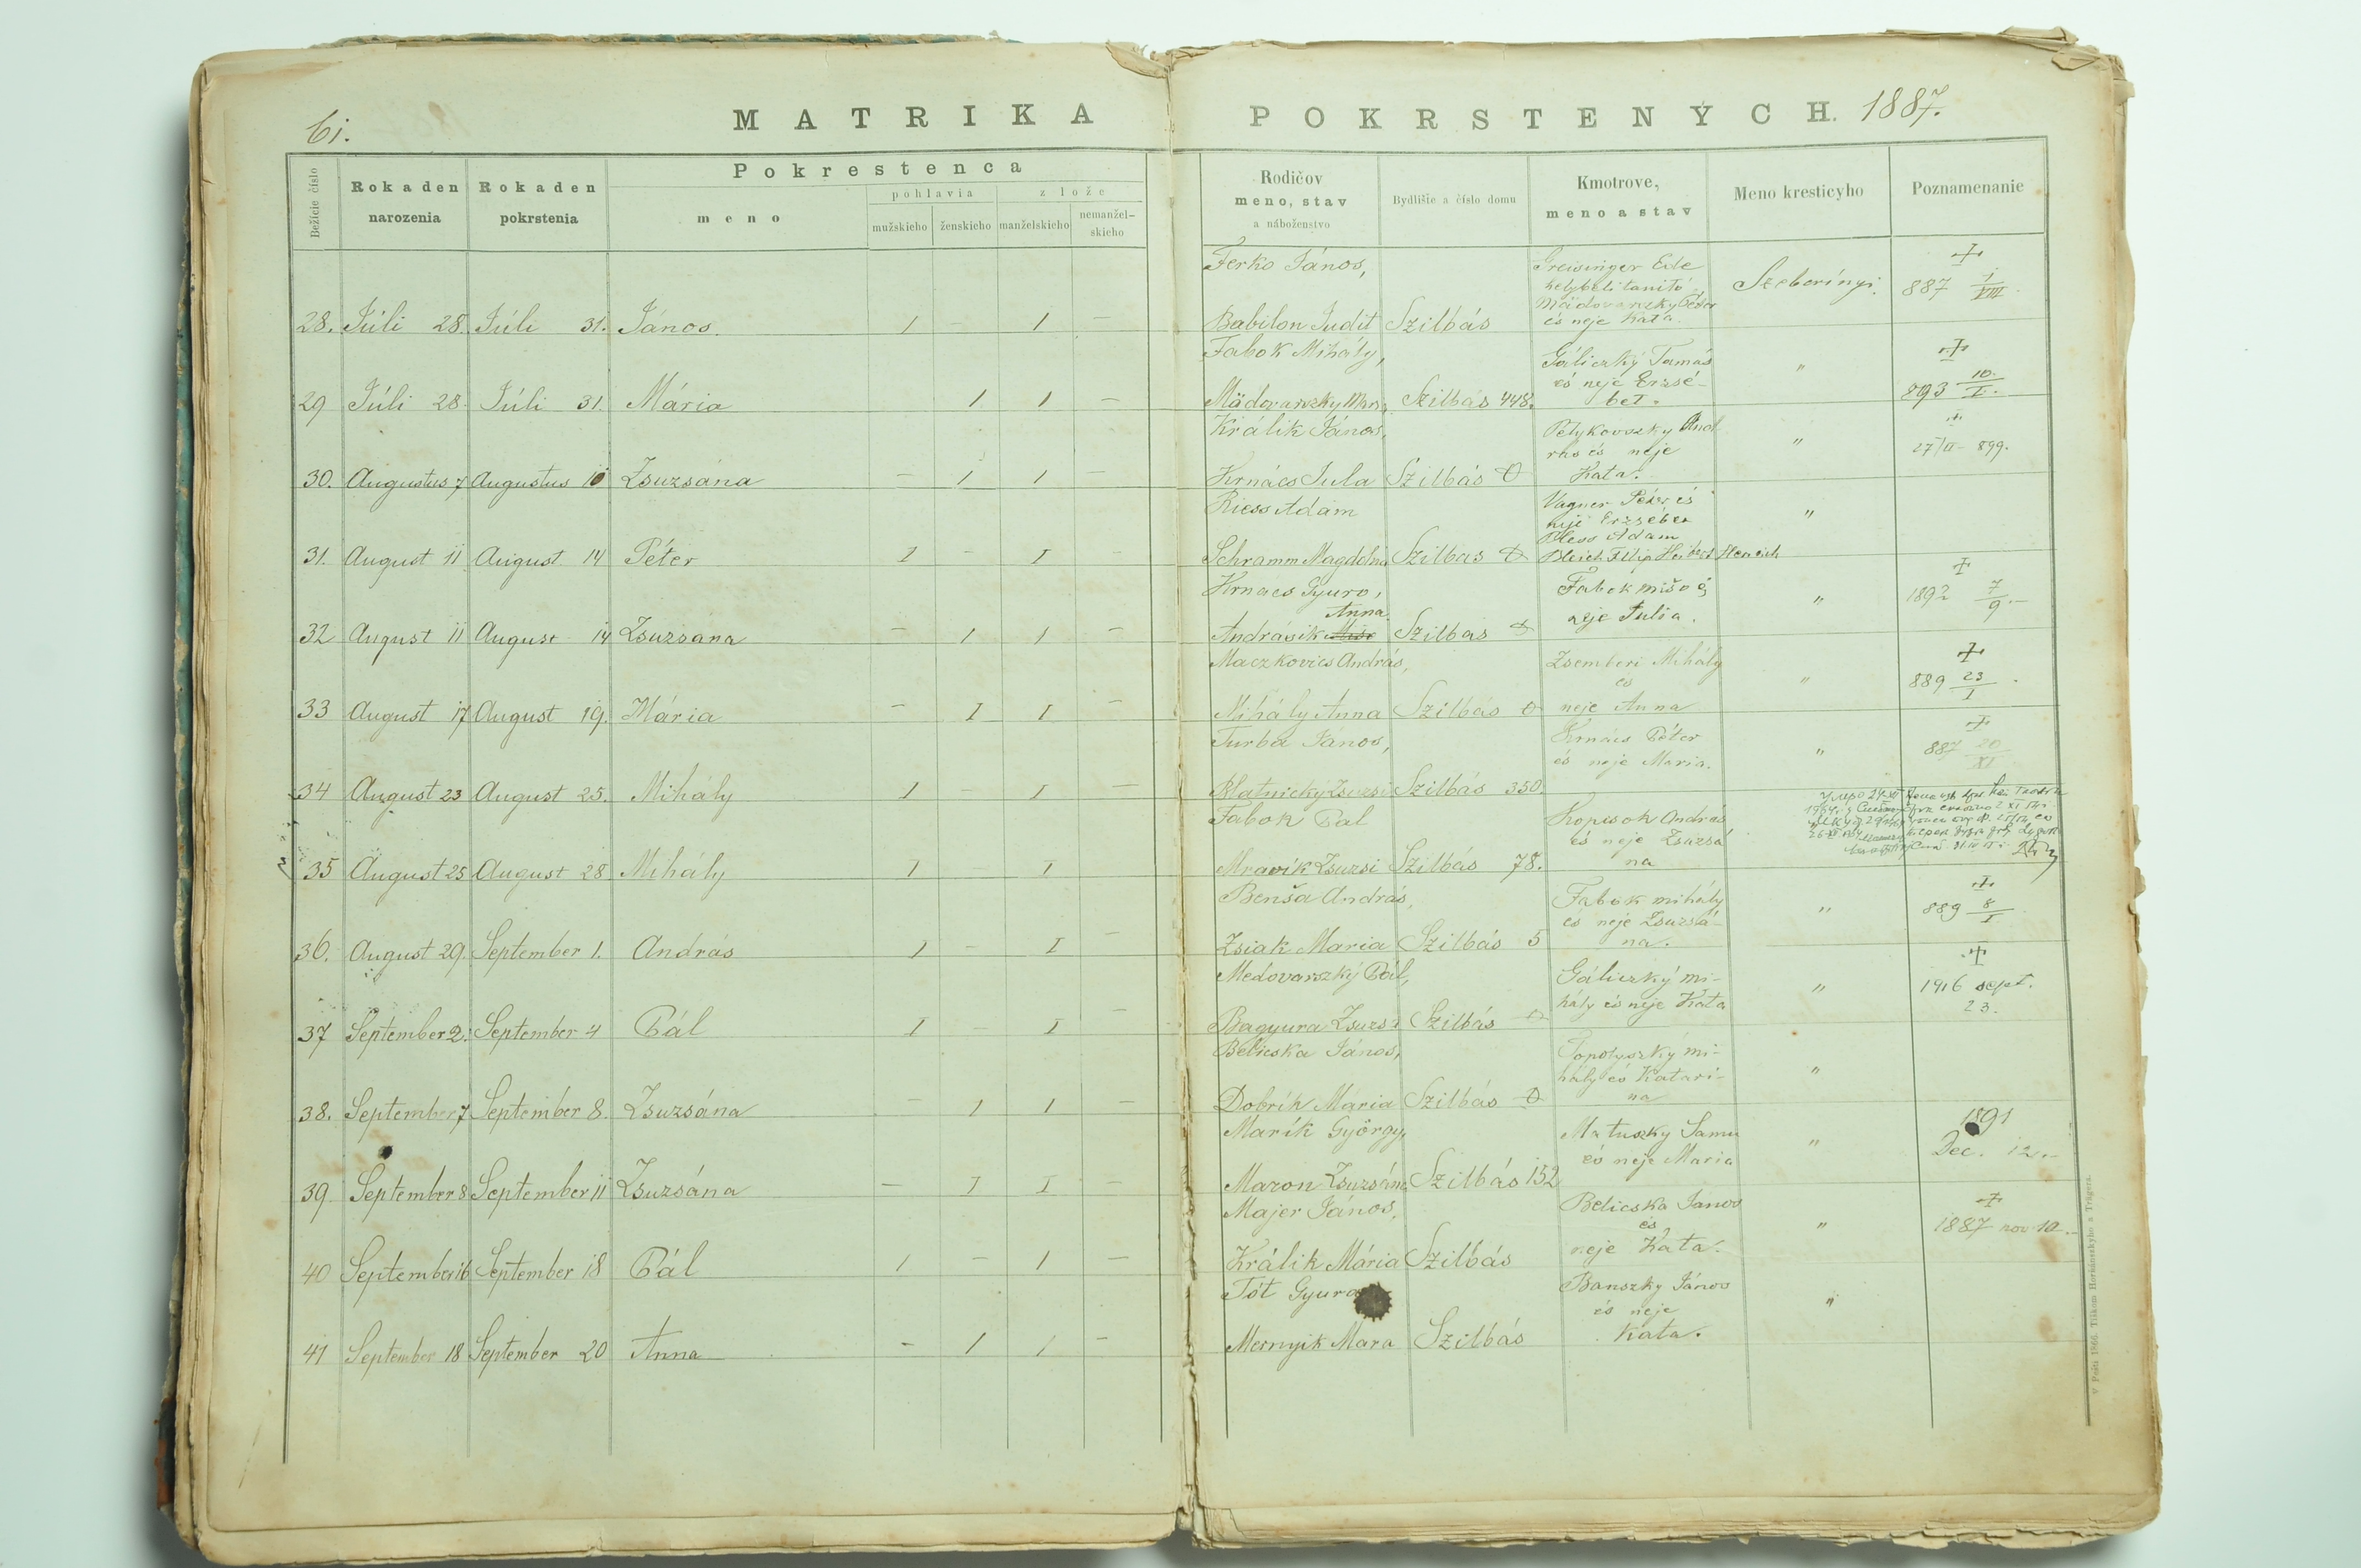 61. MATRIKA POKRSTENÝCH. 1887.
Bežície číslo
Rok a den narozenia
Rok a den pokrstenia
Pokrestenca
meno
pohlavia
mužskieho
ženskieho
z lože
manželskieho
nemanželskieho
Rodičov meno, stav a náboženstvo
Bydlišie a číslo domu
Kmotrove, meno a stav
Meno kresticyho
Poznamenanie
Ferko János,
28. Júli 28. Júli 31. János. 1 – 1 – Babilon Judit Szilbás
Greisinger Ede
helybeli tanító
Mädovarszky Péter
és neje Kata.
Szeberínyi.
+
887 1/VIII
Fabok Mihály,
29 Júli 28. Júli 31. Mária 1 1 – Mädovarszky Szilbás 448.
Gáliczký Tamás
és neje Erzsé-
bet.
"
+
893 10/I.
Králik János,
30. Augustus 7 Augustus 10 Zsuzsána – 1 1 – Hrnács Jula Szilbás 0
Petykovszky And
rás és neje
Kata.
"
+
27/II 899.
Riess Adám
31. August 11 August 14 Péter I – I Schramm Magdolna Szilbas 0
Vagner Péter és
neje Erzsébet
Adám
Filip Henrich
"
Hrnács Gyuro,
Anna
32 August 11 August 14 Zsuzsána – 1 1 – Andrásik Szilbas 0
Fabok mišo és
neje Julia.
"
+
1892 7/9.–
Maczkovics András,
33 August 17 August 19. Mária – I I – Mihály Anna Szilbás 0
Zsemberi Mihály
és
neje Anna
"
+
889 23/I.
Turba János,
34 August 23 August 25. Mihály 1 – I – Blatniczký Zsuzsi Szilbás 350.
Hrnács Péter
és neje Maria.
"
+
887 20/XI
Fabok Pal
35 August 25 August 28 Mihály I – I Mravík Zsuzsi Szilbás 78.
Kopcsok András
és neje Zsuzsá
na
Benša András,
36. August 29. September 1. András 1 – I – Zsiak Maria Szilbás 5
Fabok mihály
és neje Zsuzsá-
na.
"
+
889 8/I
Medovarszký Pál,
37 September 2. September 4 Pál I I – Bagyura Zsuzsi Szilbás 0
Gáliczký mi-
hály és neje Kata
"
+
1916 sept.
23.
Belicska János,
38. September 7 September 8. Zsuzsána – 1 1 – Dobrík Maria Szilbás 0
Topolyszký mi-
hály és Katari-
na
"
Marík György,
39 September 8 September 11 Zsuzsána – I I – Mazon Zsuzsána Szilbás 152
Matuszky Samu
és neje Maria
"
1891
Dec. 12.–
Majer János,
40 September 16 September 18 Pál 1 – 1 – Králik Mária Szilbás
Belicska Janos
és
neje Kata.
"
+
1887 nov 10.–
Tót Gyura
41 September 18 September 20 Anna – 1 1 – Mernyik Mara Szilbás
Banszky János
és neje
Kata.
"